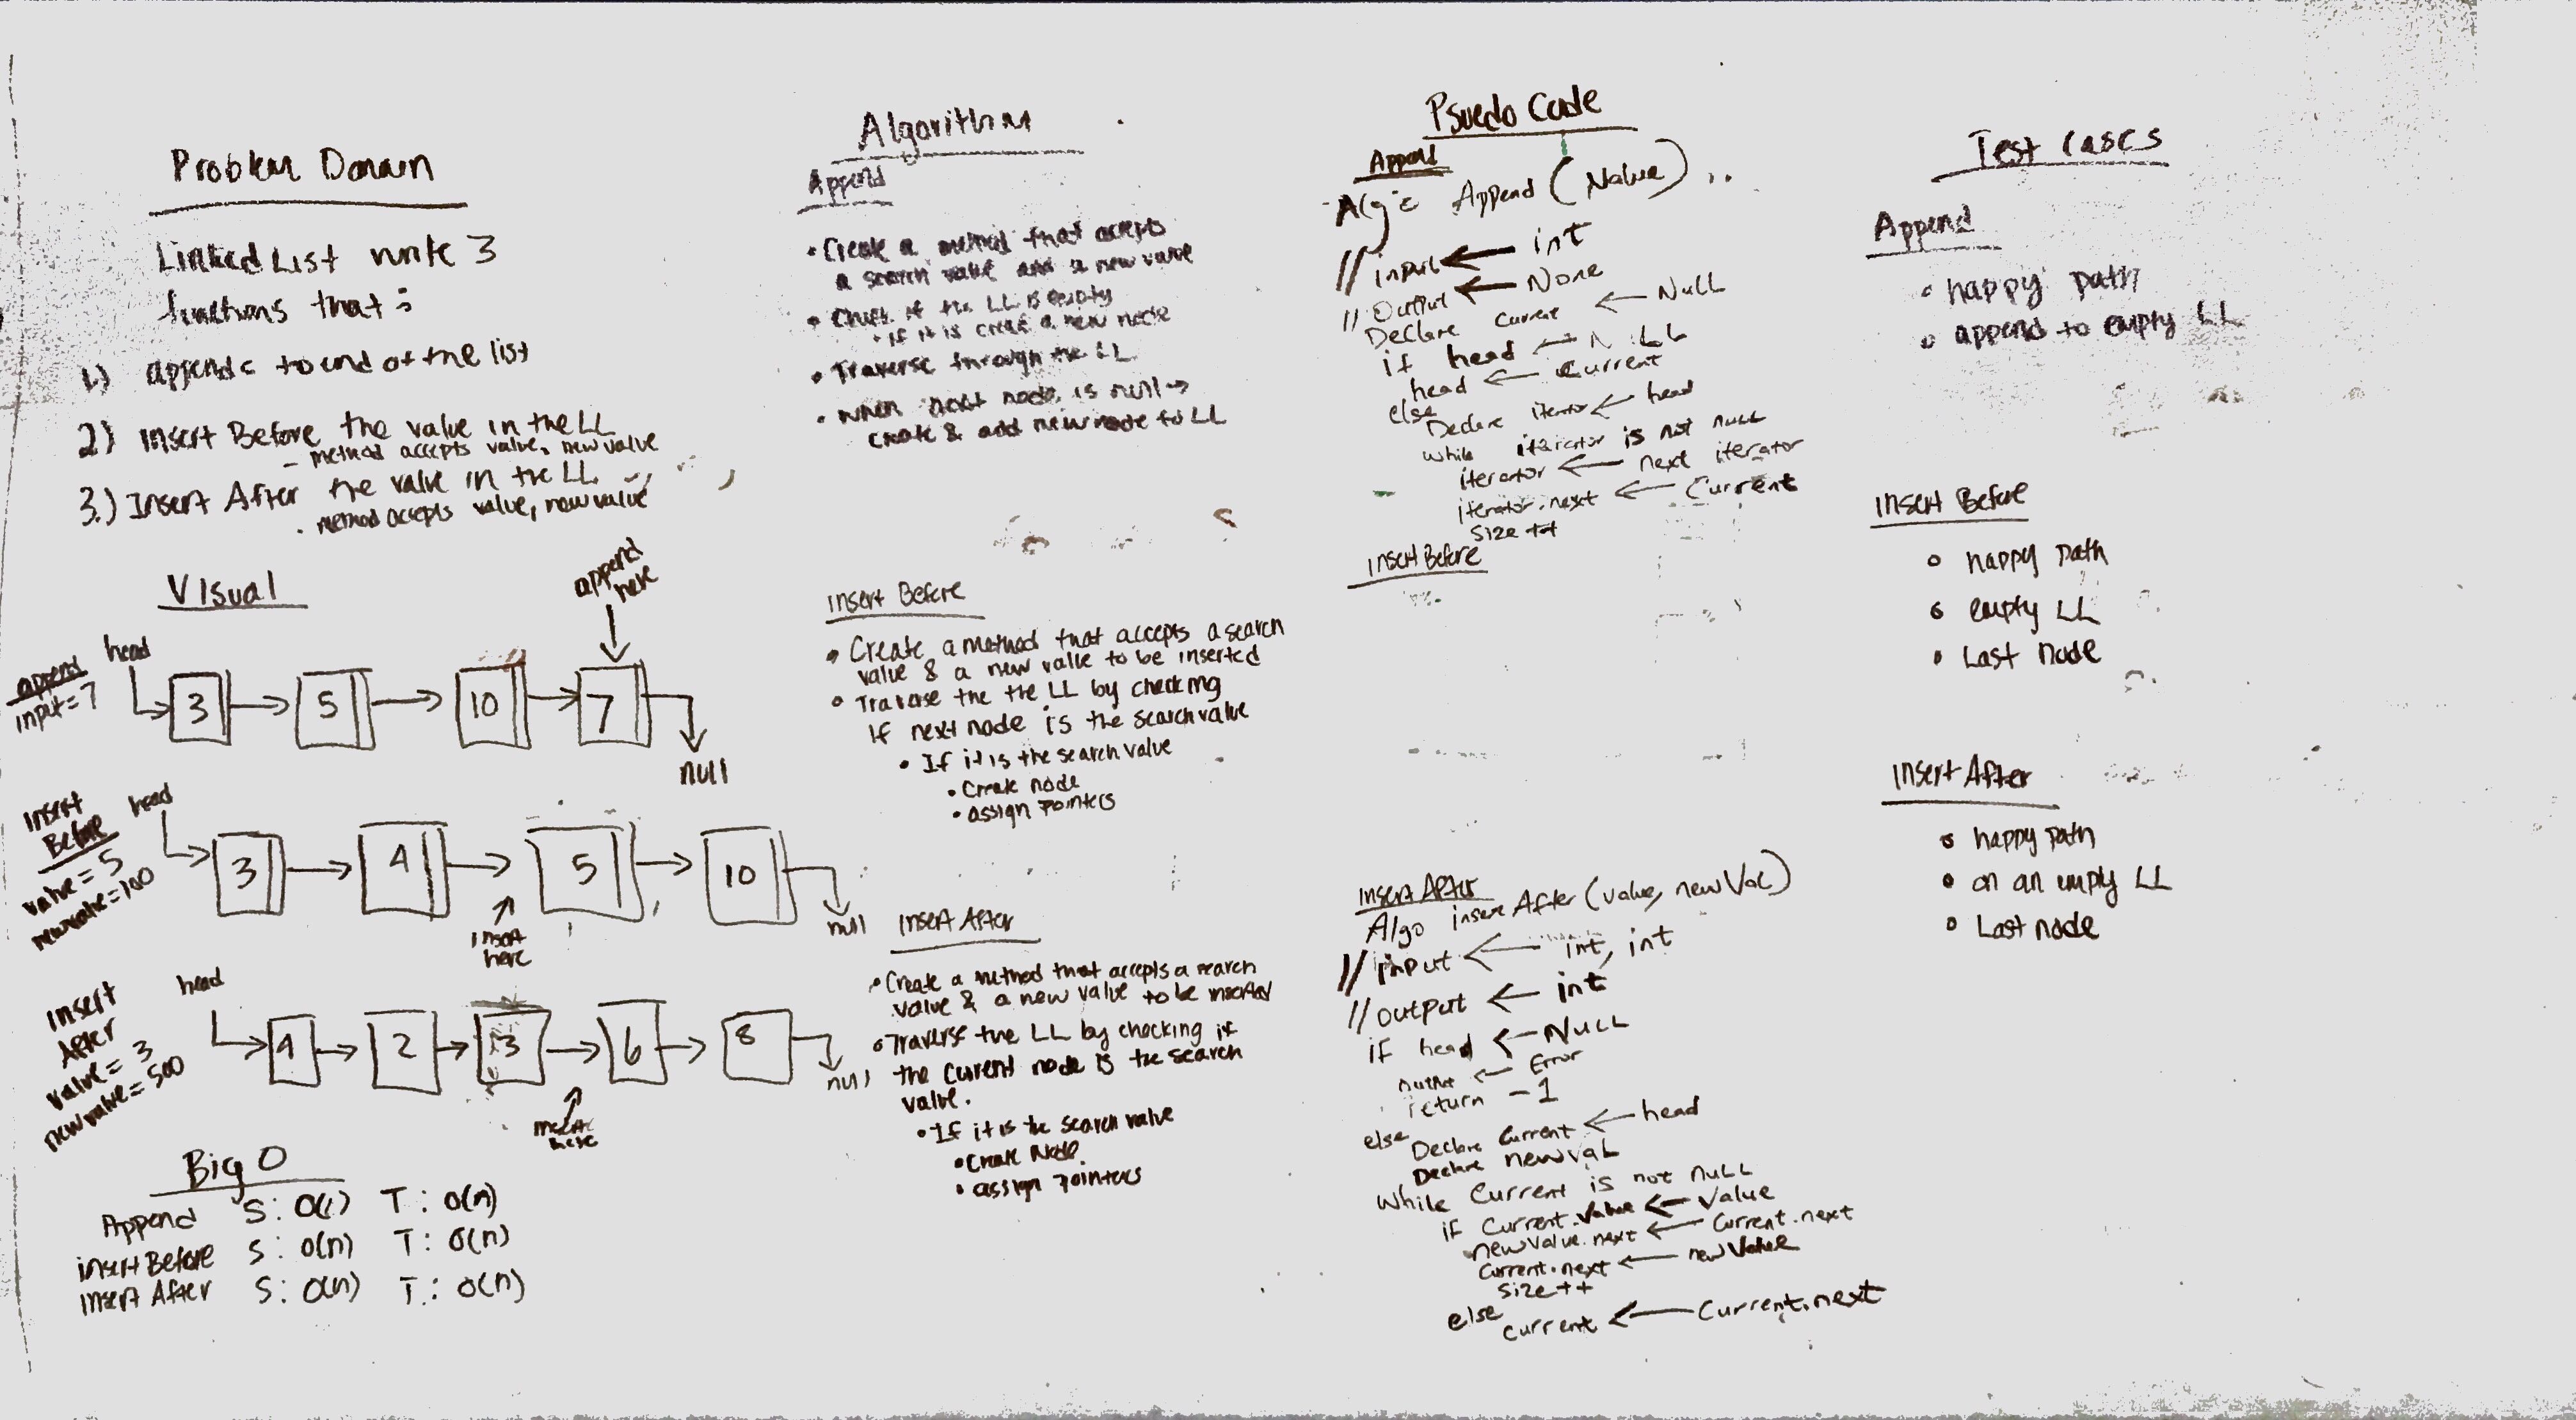 Problem Domain
Linked List write 3
functions that :
1.) append to end of the list
2) Insert Before the value in the LL
- method accepts value, new value
3.) Insert After the value in the LL
. method accepts value, new value
Visual
append
here
append
input = 7
head
3
5
10
7
null
Insert
Before
value = 5
newvalue=100
head
3
4
5
10
null
insert
here
Insert
After
value = 3
new value = 500
head
2
3
6
8
null
insert
here
Big O
Append S: O(1) T: O(n)
insert Before S: O(n) T: O(n)
Insert After S: O(n) T: O(n)
Algorithm
Append
• Create a method that accepts
a search value and a new value
• Check if the LL is empty
• If it is create a new node
• Traverse through the LL
• when next node is null →
create & add new node to LL
Insert Before
• Create a method that accepts a search
value & a new value to be inserted
• Traverse the the LL by checking
If next node is the search value
• If it is the search value
• Create node
• assign pointers
Insert After
• Create a method that accepts a search
value & a new value to be inserted
• Traverse the LL by checking if
the current node is the search
value.
• If it is the search value
• Create Node
• assign pointers
Psuedo Code
Append
Append (Nalue)
// input ← int
// Output ← None
Declare current ← Null
if head ← NULL
head ← Current
else
Declare iterator ← head
while iterator is not null
iterator ← next iterator
iterator.next ← Current
Size ++
Insert Before
Insert After
Algo insert After (value, newVal)
// input ← int, int
// output ← int
if head ← NULL
output ← Error
return -1
else
Declare Current ← head
Declare newval
While Current is not null
if Current.value ← Value
newValue.next ← Current.next
Current.next ← newValue
Size ++
else
current ← Current.next
Test Cases
Append
happy path
append to empty LL
Insert Before
happy path
empty LL
Last node
Insert After
happy path
on an empty LL
Last node